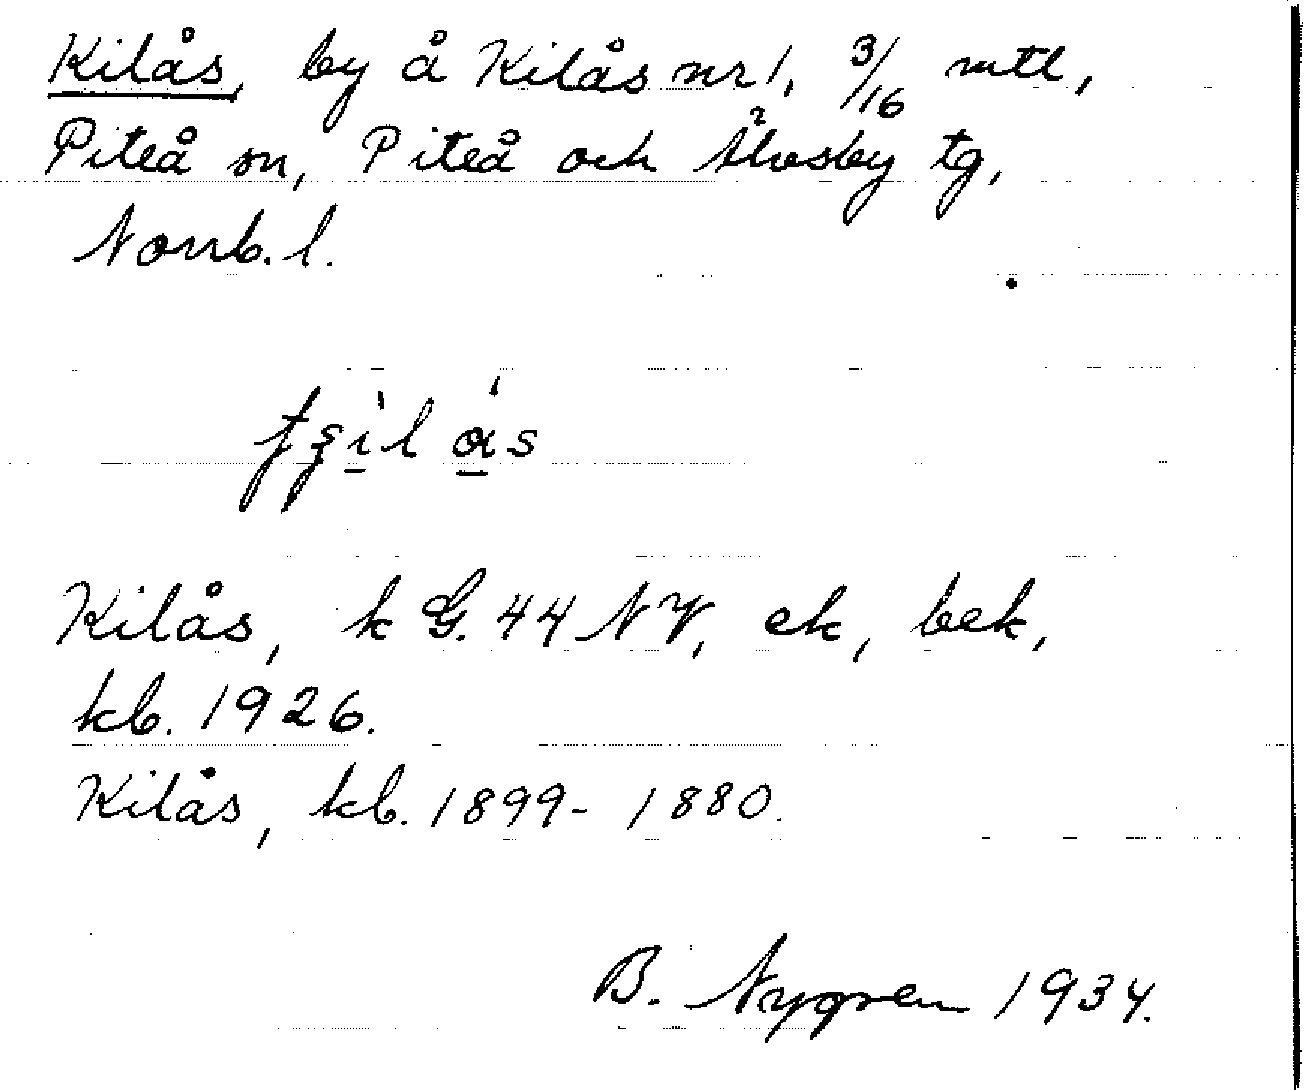 Kilås, by å Kilås nr 1, 3/16 mtl,
Piteå sn, Piteå och Älvsby tg,
Norrb. l.
Kilås, k G. 44 NV, ek, bek,
kb. 1926.
Kilås, kb. 1899-1880.
B. Nygren 1934.